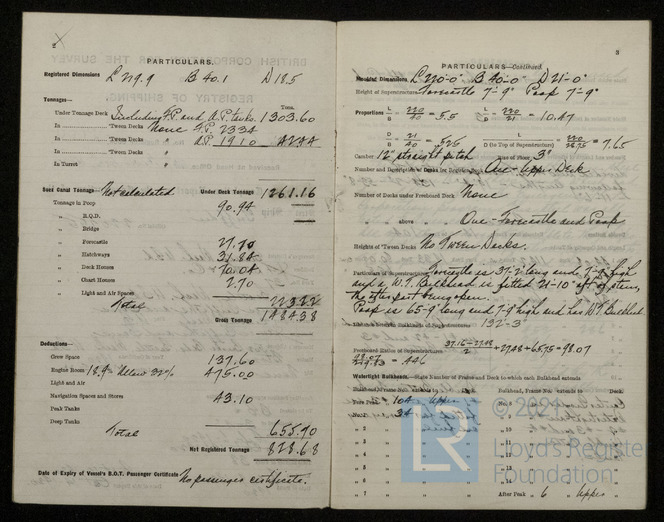 2
PARTICULARS.
Registered Dimensions L 219.9 B 40.1 D 18.5
Tonnages—
Tons.
Under Tonnage Deck Including F.P. and A.P. tanks. 1303.60
In 'Tween Decks None F.P. 23.34
In 'Tween Decks " A.P. 19.10 42.44
In 'Tween Decks "
In Turret "
Suez Canal Tonnage— Not calculated Under Deck Tonnage 1261.16
Tonnage in Poop 90.94
" R.Q.D.
" Bridge
" Forecastle 27.70
" Hatchways 31.84
" Deck Houses 70.04
" Chart Houses 2.70
" Light and Air Spaces
Total 223.22
Gross Tonnage 1484.38
Deductions—
Crew Space 137.60
Engine Room 18.9% below 32% 475.00
Light and Air
Navigation Spaces and Stores 43.10
Peak Tanks
Deep Tanks
Total 655.70
Net Registered Tonnage 828.68
Date of Expiry of Vessel's B.O.T. Passenger Certificate No passenger certificate.
3
PARTICULARS—Continued
Moulded Dimensions L 220'-0" B 40'-0" D 21'-0"
Height of Superstructures Forecastle 7'-9" Poop 7'-9"
Proportions L/B = 220/40 = 5.5 L/D = 220/21 = 10.47
D/B = 21/40 = .525 L/D (to Top of Superstructure) = 220/28.75 = 7.65
Camber 12" straight pitch Rise of Floor 3"
Number and Description of Decks for Register Book One - Upper Deck
Number of Decks under Freeboard Deck None
" above " One - Forecastle and Poop
Heights of 'Tween Decks No Tween Decks.
Particulars of Superstructures Forecastle is 37'-2" long and 7'-9" high
and a W.T. Bulkhead is fitted 21'-10" aft of stem,
the after part being open.
Poop is 65'-9" long and 7'-9" high and has W.T. Bulkhead.
Distance between Bulkheads of Superstructures 132'-3"
Freeboard Ratio of Superstructures 37.16-27.48/2 + 27.48 + 65.75 = 98.07
98.07/219.93 = .446
Watertight Bulkheads.—State Number of Frames and Deck to which each Bulkhead extends
Bulkhead, Frame No. extends to Deck Bulkhead, Frame No. extends to Deck
Fore Peak 104 Upper No. 8
No. 1 34 " 9
" 2 " 10
" 3 " 11
" 4 " 12
" 5 " 13
" 6 " 14
" 7 After Peak 6 Upper
© 2021
LR
Lloyd's Register
Foundation